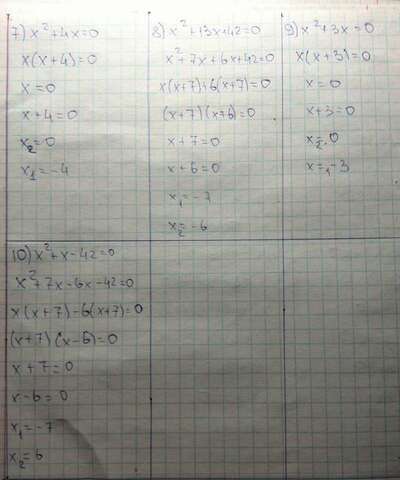 7) x²+4x=0
x(x+4)=0
x=0
x+4=0
x₂=0
x₁=-4
8) x²+13x+42=0
x²+7x+6x+42=0
x(x+7)+6(x+7)=0
(x+7)(x+6)=0
x+7=0
x+6=0
x₁=-7
x₂=-6
9) x²+3x=0
x(x+3)=0
x=0
x+3=0
x₂=0
x₁=-3
10) x²+x-42=0
x²+7x-6x-42=0
x(x+7)-6(x+7)=0
(x+7)(x-6)=0
x+7=0
x-6=0
x₁=-7
x₂=6